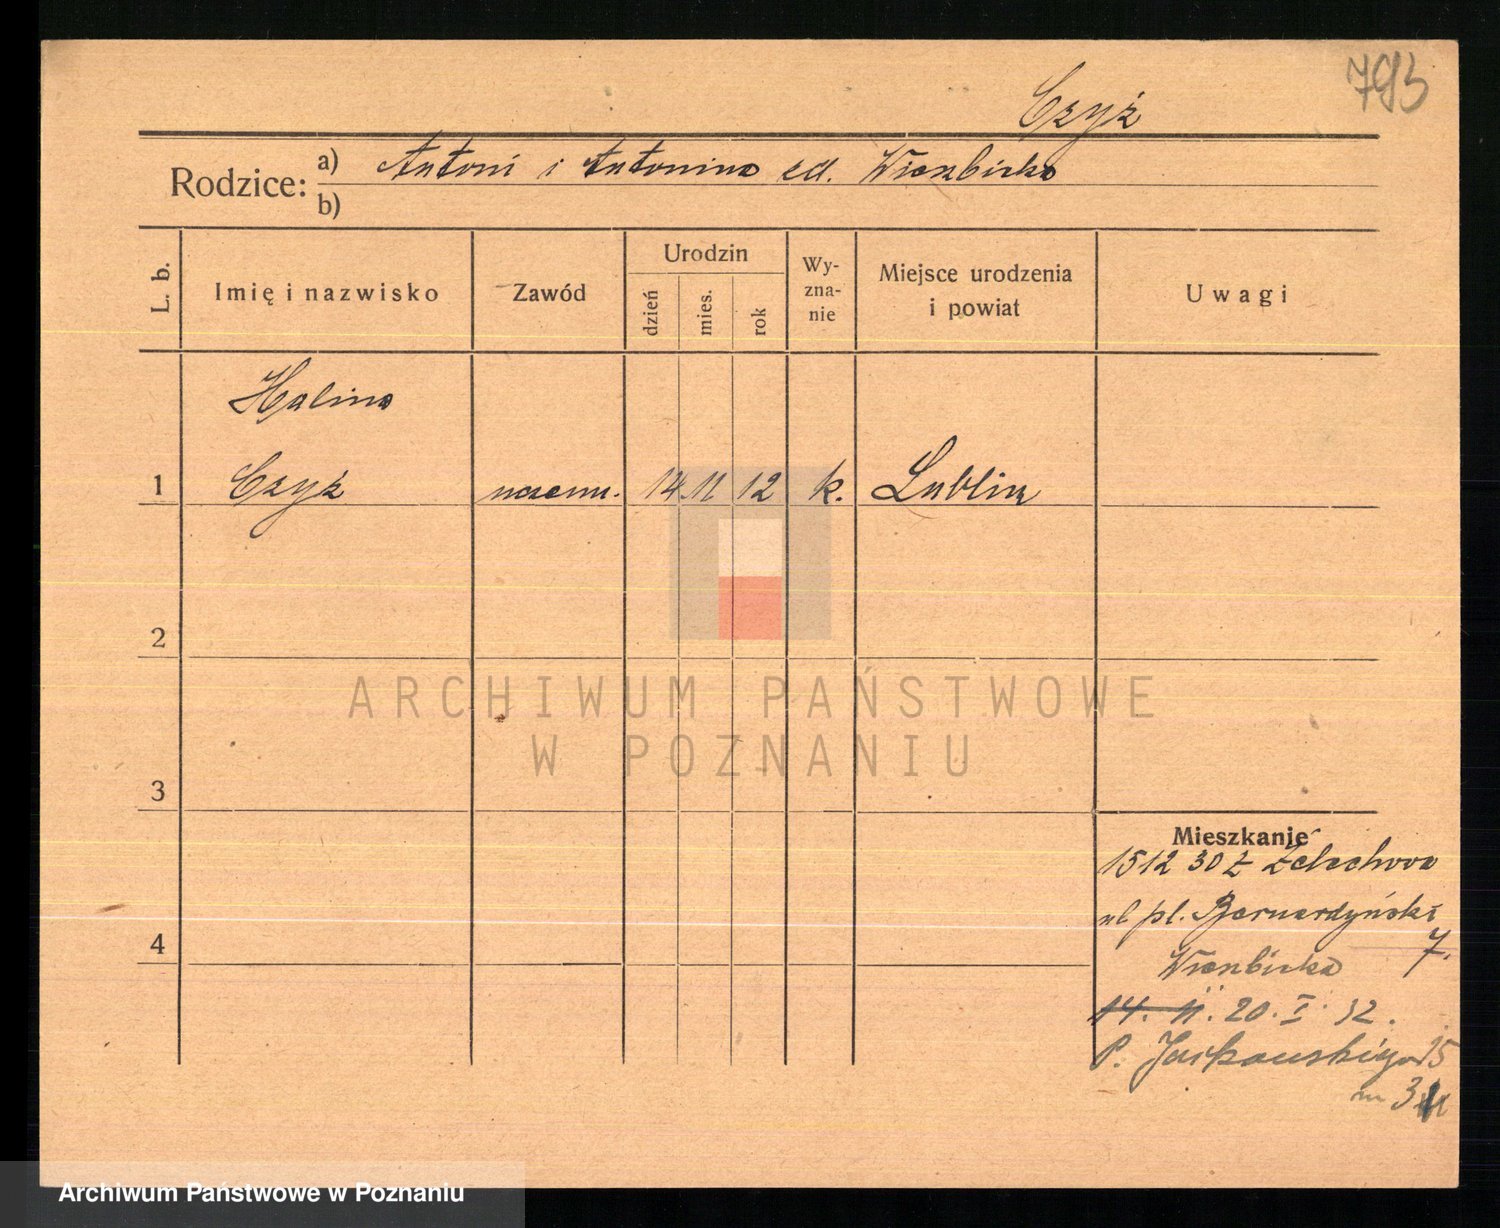 793
Czyż
Rodzice: a) Antoni i Antonina zd. Wierzbicka
b)
L. b. Imię i nazwisko Zawód Urodzin dzień mies. rok Wy-zna-nie Miejsce urodzenia i powiat Uwagi
Halina
1 Czyż 14 11 12 k. Lublin
2
ARCHIWUM PAŃSTWOWE
W POZNANIU
3
Mieszkanie
15 12 30 z Żelechowa
pl. Bernardyński
7.
Wierzbicka
14. 11. 20. I. 32.
P. Jackowskiego 15
m 3
4
Archiwum Państwowe w Poznaniu